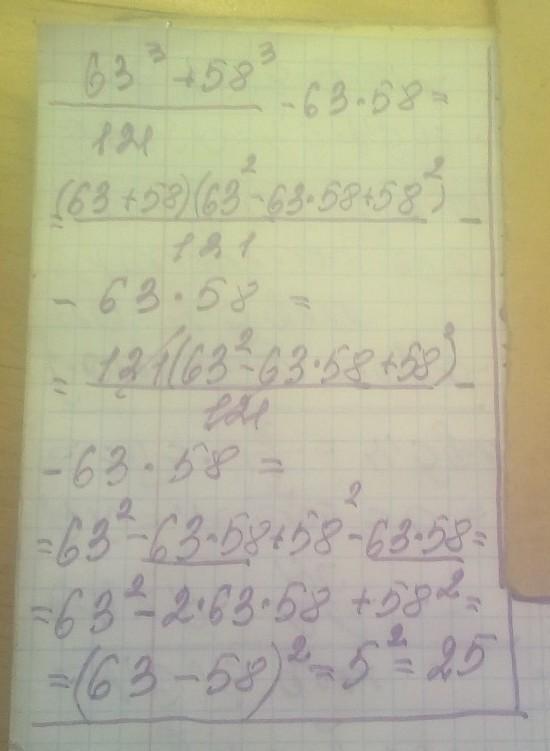 63³ + 58³ / 121 - 63·58 =
= (63 + 58)(63² - 63·58 + 58²) / 121 -
- 63·58 =
= 121(63² - 63·58 + 58²) / 121 -
- 63·58 =
= 63² - 63·58 + 58² - 63·58 =
= 63² - 2·63·58 + 58² =
= (63 - 58)² = 5² = 25